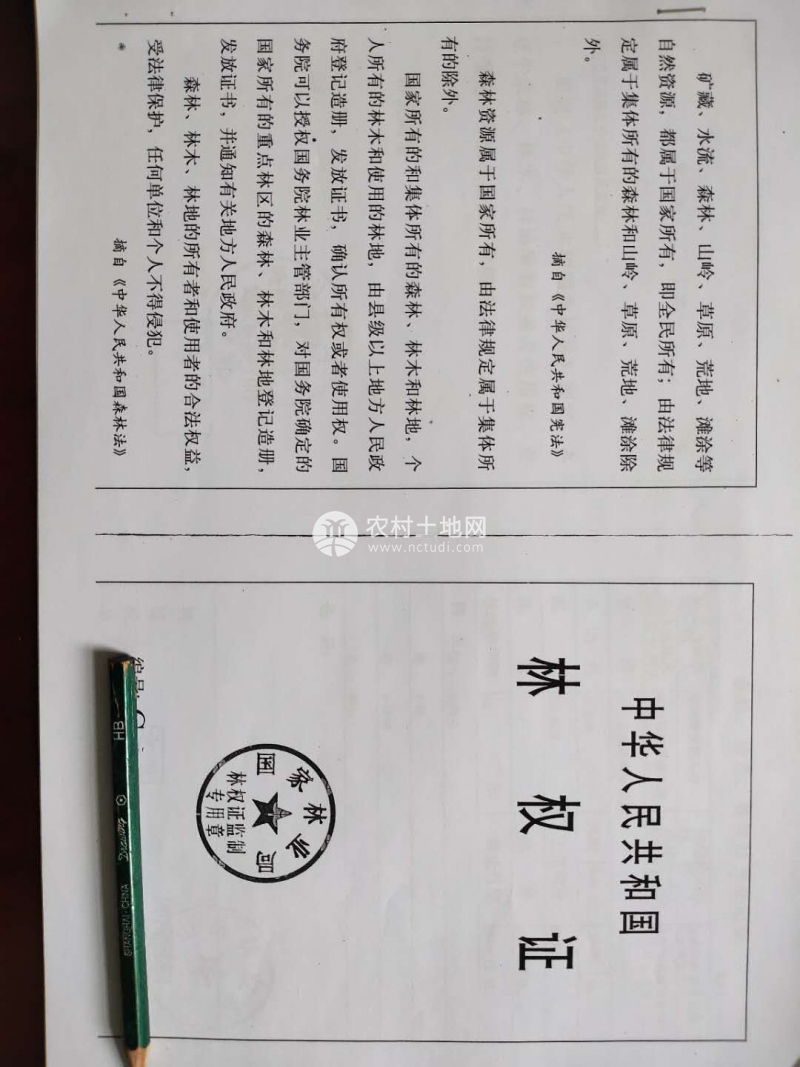 矿藏、水流、森林、山岭、草原、荒地、滩涂等
自然资源，都属于国家所有，即全民所有；由法律规
定属于集体所有的森林和山岭、草原、荒地、滩涂除
外。
摘自《中华人民共和国宪法》
森林资源属于国家所有，由法律规定属于集体所
有的除外。
国家所有的和集体所有的森林、林木和林地，个
人所有的林木和使用的林地，由县级以上地方人民政
府登记造册，发放证书，确认所有权或者使用权。国
务院可以授权国务院林业主管部门，对国务院确定的
国家所有的重点林区的森林、林木和林地登记造册，
发放证书，并通知有关地方人民政府。
森林、林木、林地的所有者和使用者的合法权益，
受法律保护，任何单位和个人不得侵犯。
摘自《中华人民共和国森林法》
中华人民共和国
林权证
国家林业局
林权证监制
专用章
编号:
HB
SHANGHAI·CHINA
农村土地网
www.nctudi.com